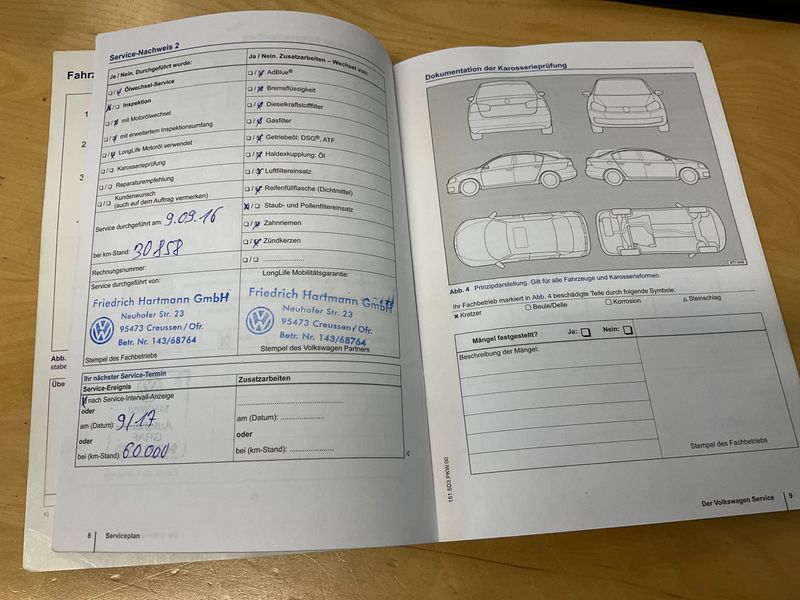 Fahrz
1
2
3
Abb.
stabe
Übe
Service-Nachweis 2
Ja / Nein. Durchgeführt wurde:
Ölwechsel-Service
Inspektion
mit Motorölwechsel
mit erweitertem Inspektionsumfang
LongLife Motoröl verwendet
Karosserieprüfung
Reparaturempfehlung
Kundenwunsch
(auch auf dem Auftrag vermerken)
Service durchgeführt am: 9.09.16
bei km-Stand: 30858
Rechnungsnummer:
Service durchgeführt von:
Friedrich Hartmann GmbH
Neuhofer Str. 23
95473 Creussen/Ofr.
Betr. Nr. 143/68764
Stempel des Fachbetriebs
Ja / Nein. Zusatzarbeiten – Wechsel von:
AdBlue®
Bremsflüssigkeit
Dieselkraftstofffilter
Gasfilter
Getriebeöl: DSG®, ATF
Haldexkupplung: Öl
Luftfiltereinsatz
Reifenfüllflasche (Dichtmittel)
Staub- und Pollenfiltereinsatz
Zahnriemen
Zündkerzen
LongLife Mobilitätsgarantie:
Friedrich Hartmann GmbH
Neuhofer Str. 23
95473 Creussen/Ofr.
Betr. Nr. 143/68764
Stempel des Volkswagen Partners
Ihr nächster Service-Termin
Service-Ereignis
nach Service-Intervall-Anzeige
oder
am (Datum): 9/17
oder
bei (km-Stand): 60000
Zusatzarbeiten
am (Datum):
oder
bei (km-Stand):
8 Serviceplan
Dokumentation der Karosserieprüfung
Abb. 4 Prinzipdarstellung. Gilt für alle Fahrzeuge und Karosserieformen.
Ihr Fachbetrieb markiert in Abb. 4 beschädigte Teile durch folgende Symbole:
Kratzer Beule/Delle Korrosion Steinschlag
Mängel festgestellt? Ja: Nein:
Beschreibung der Mängel:
Stempel des Fachbetriebs
151.5D3.PKW.00
Der Volkswagen Service 9